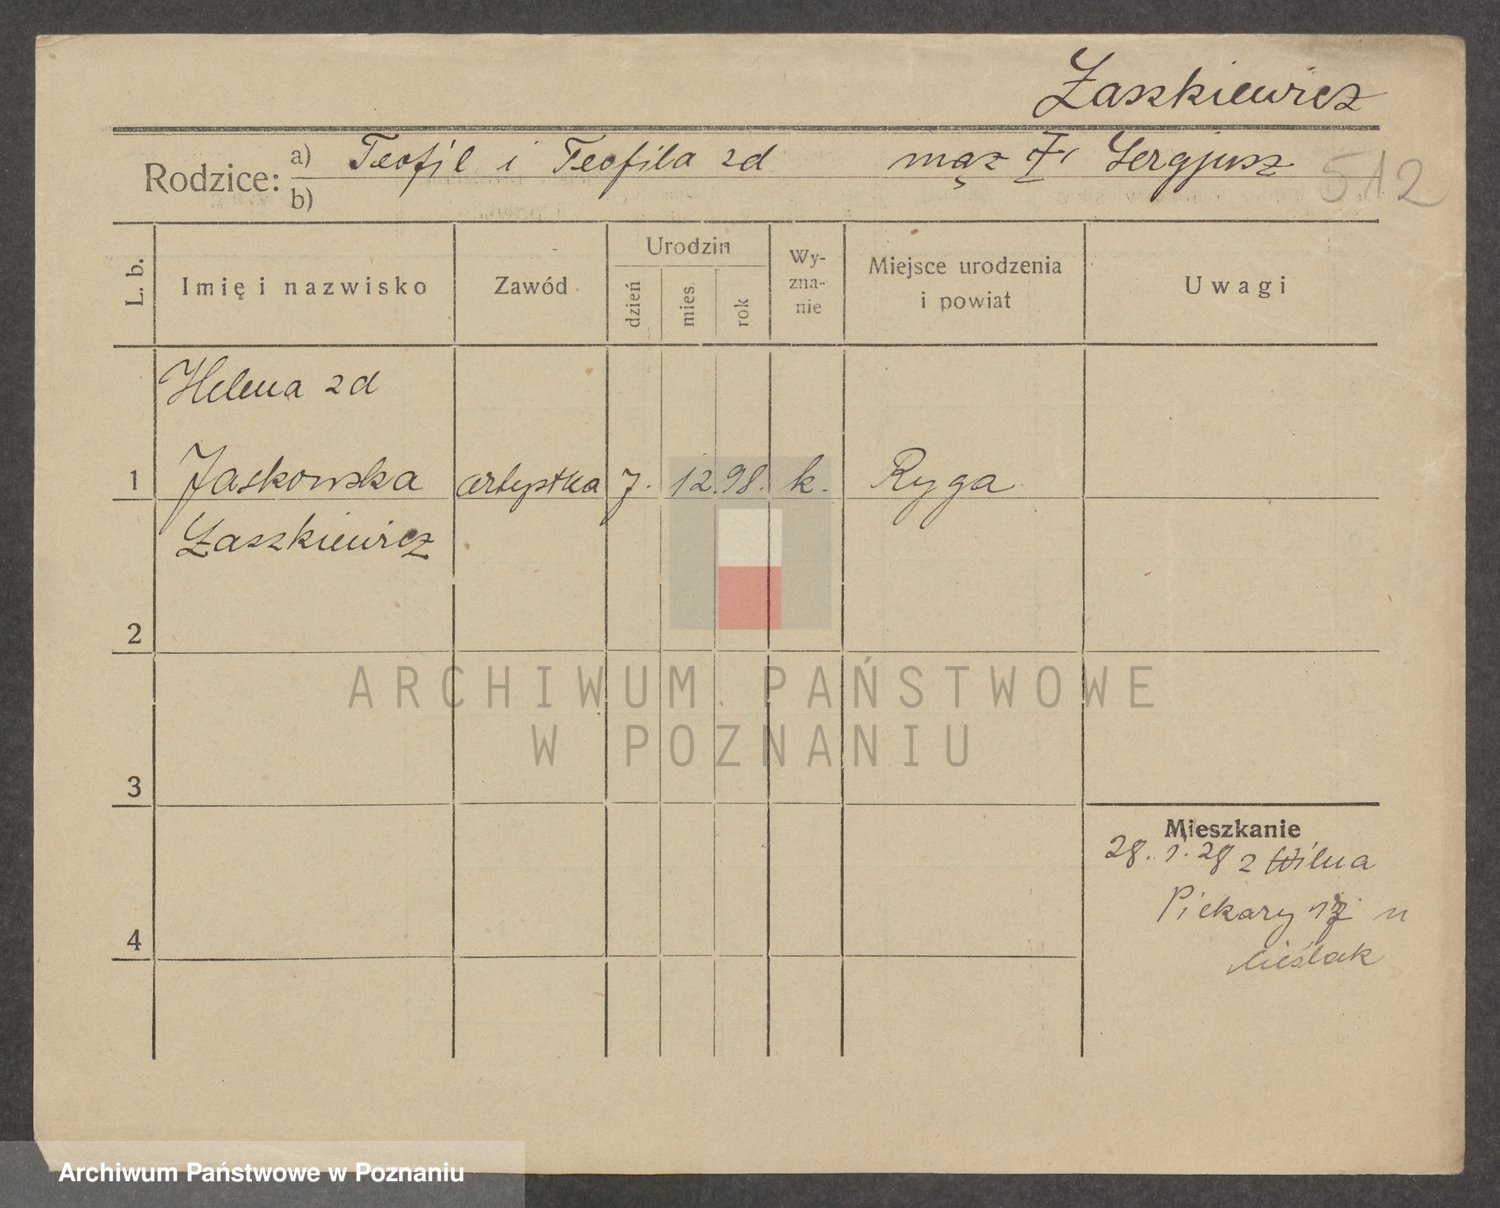 Łaszkiewicz
Rodzice: a) Teofil i Teofila zd mąż Sergjusz
b)
512
L. b.
Imię i nazwisko
Zawód
Urodzin
dzień
mies
rok
Wy-
zna-
nie
Miejsce urodzenia
i powiat
Uwagi
Helena zd
1 Jaskowska artystka 7. 12. 98. k. Ryga
Łaszkiewicz
2
3
4
Mieszkanie
28. 1. 28 z Wilna
Piekary u
Cieślak
ARCHIWUM PAŃSTWOWE
W POZNANIU
Archiwum Państwowe w Poznaniu